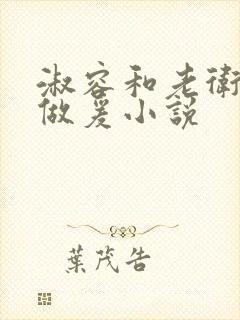 淑容和老衛
做爰小説
葉茂告